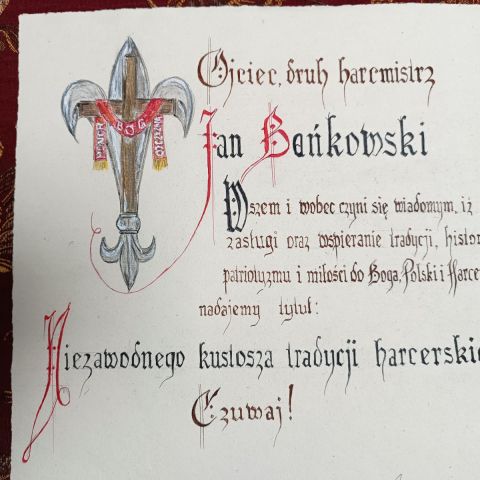 Ojciec, druh harcmistrz
Jan Bońkowski
Wszem i wobec czyni się wiadomym, iż
zasługi oraz wspieranie tradycji, histor
patriotyzmu i miłości do Boga, Polski i Harce
nadajemy tytuł:
Niezawodnego kustosza tradycji harcerskie
Czuwaj!
HONOR
BÓG
OJCZYZNA